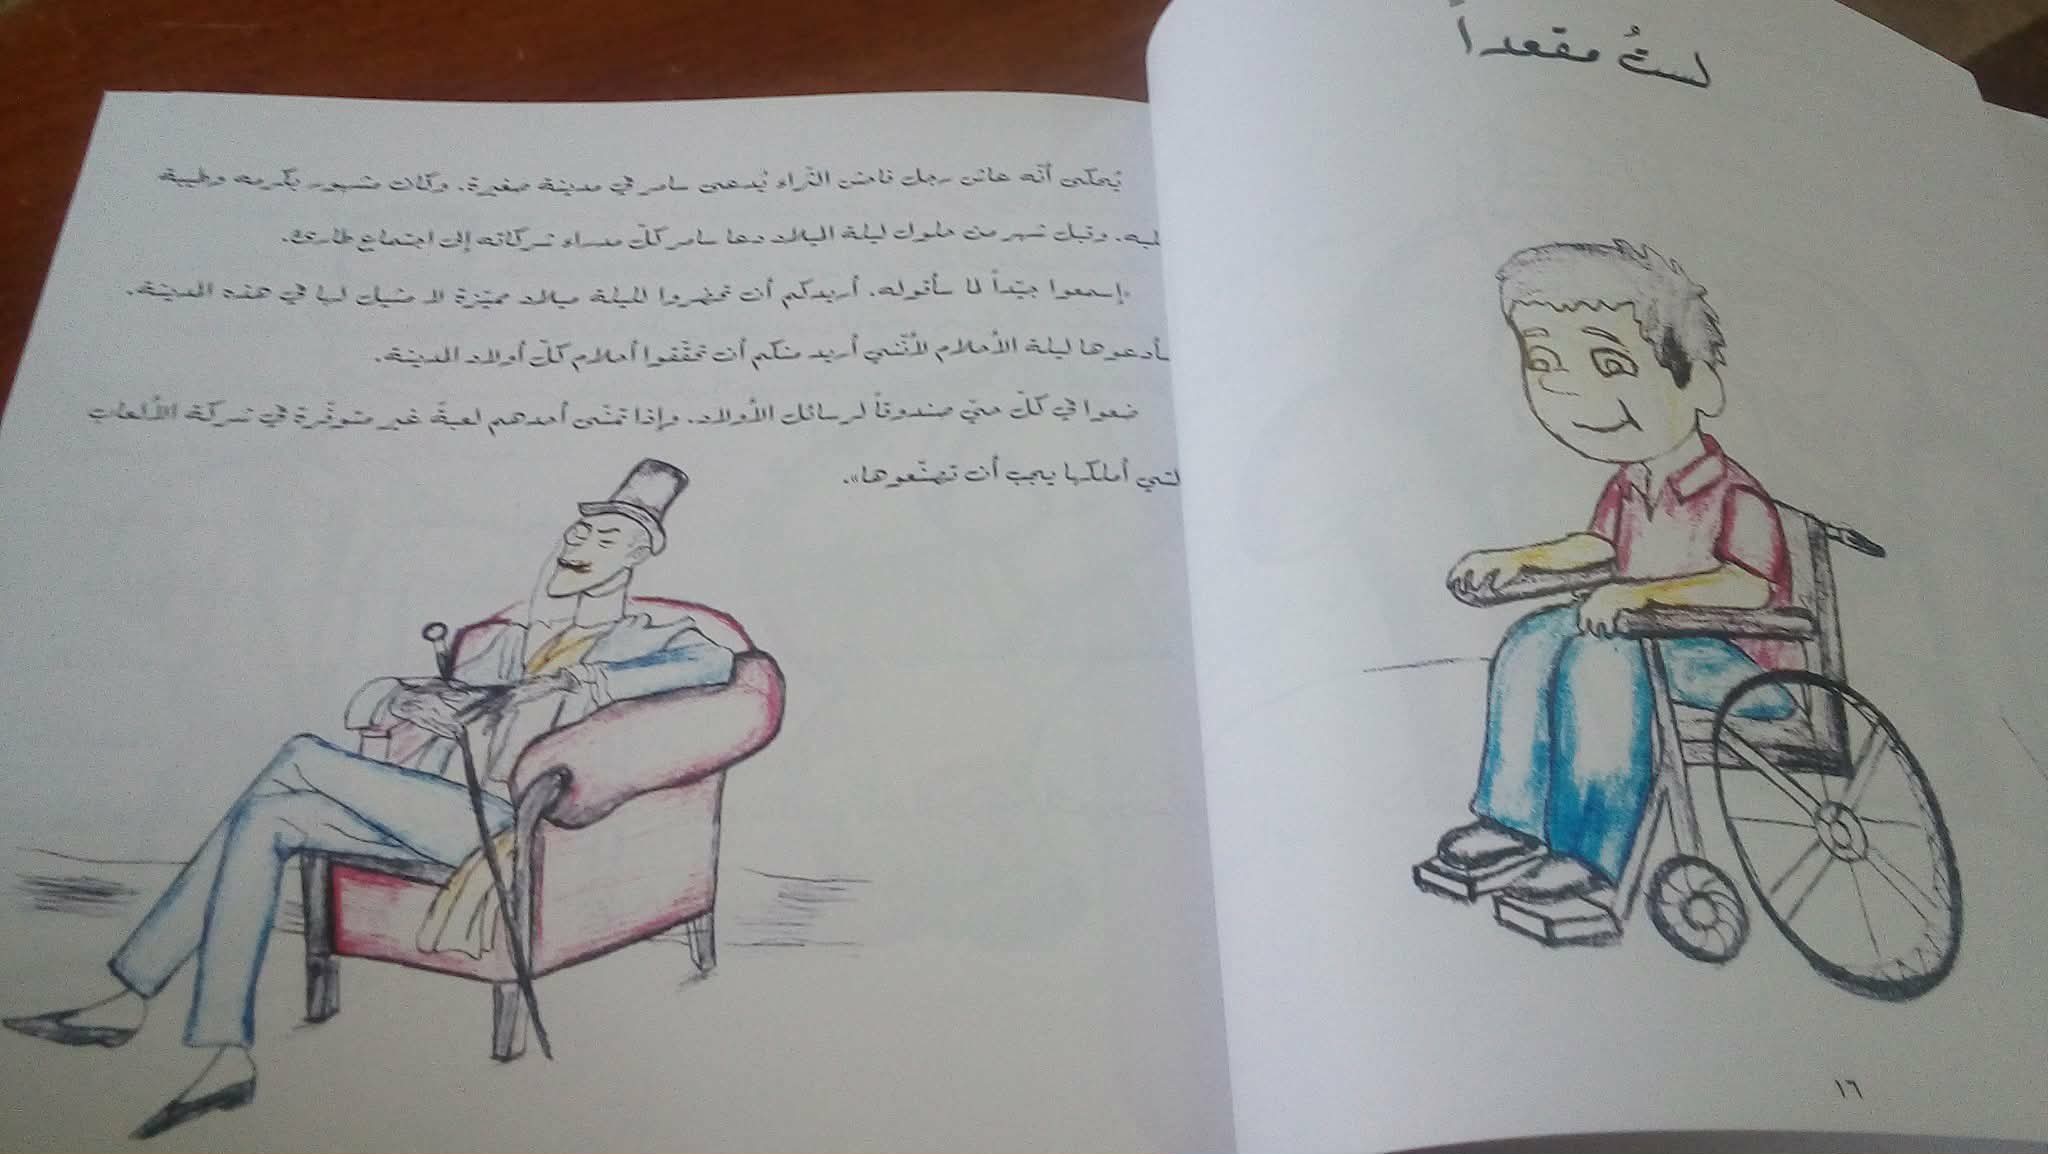 لستُ مقعداً
١٦
يُحكى أنّه عاش رجل فاحش الثّراء يُدعى سامر في مدينة صغيرة. وكان مشهور بكرمه وطيبة
قلبه. وقبل شهر من حلول ليلة الميلاد دعا سامر كلّ مدراء شركاته إلى اجتماع طارئ.
«إسمعوا جيّداً لما سأقوله. أريدكم أن تحضروا لليلة ميلاد مميّزة لا مثيل لها في هذه المدينة.
سأدعوها ليلة الأحلام لأنّني أريد منكم أن تحقّقوا أحلام كلّ أولاد المدينة.
ضعوا في كلّ حيّ صندوقاً لرسائل الأولاد. وإذا تمنّى أحدهم لعبةً غير متوفّرة في شركة الألعاب
التي أملكها يجب أن تصنّعوها».